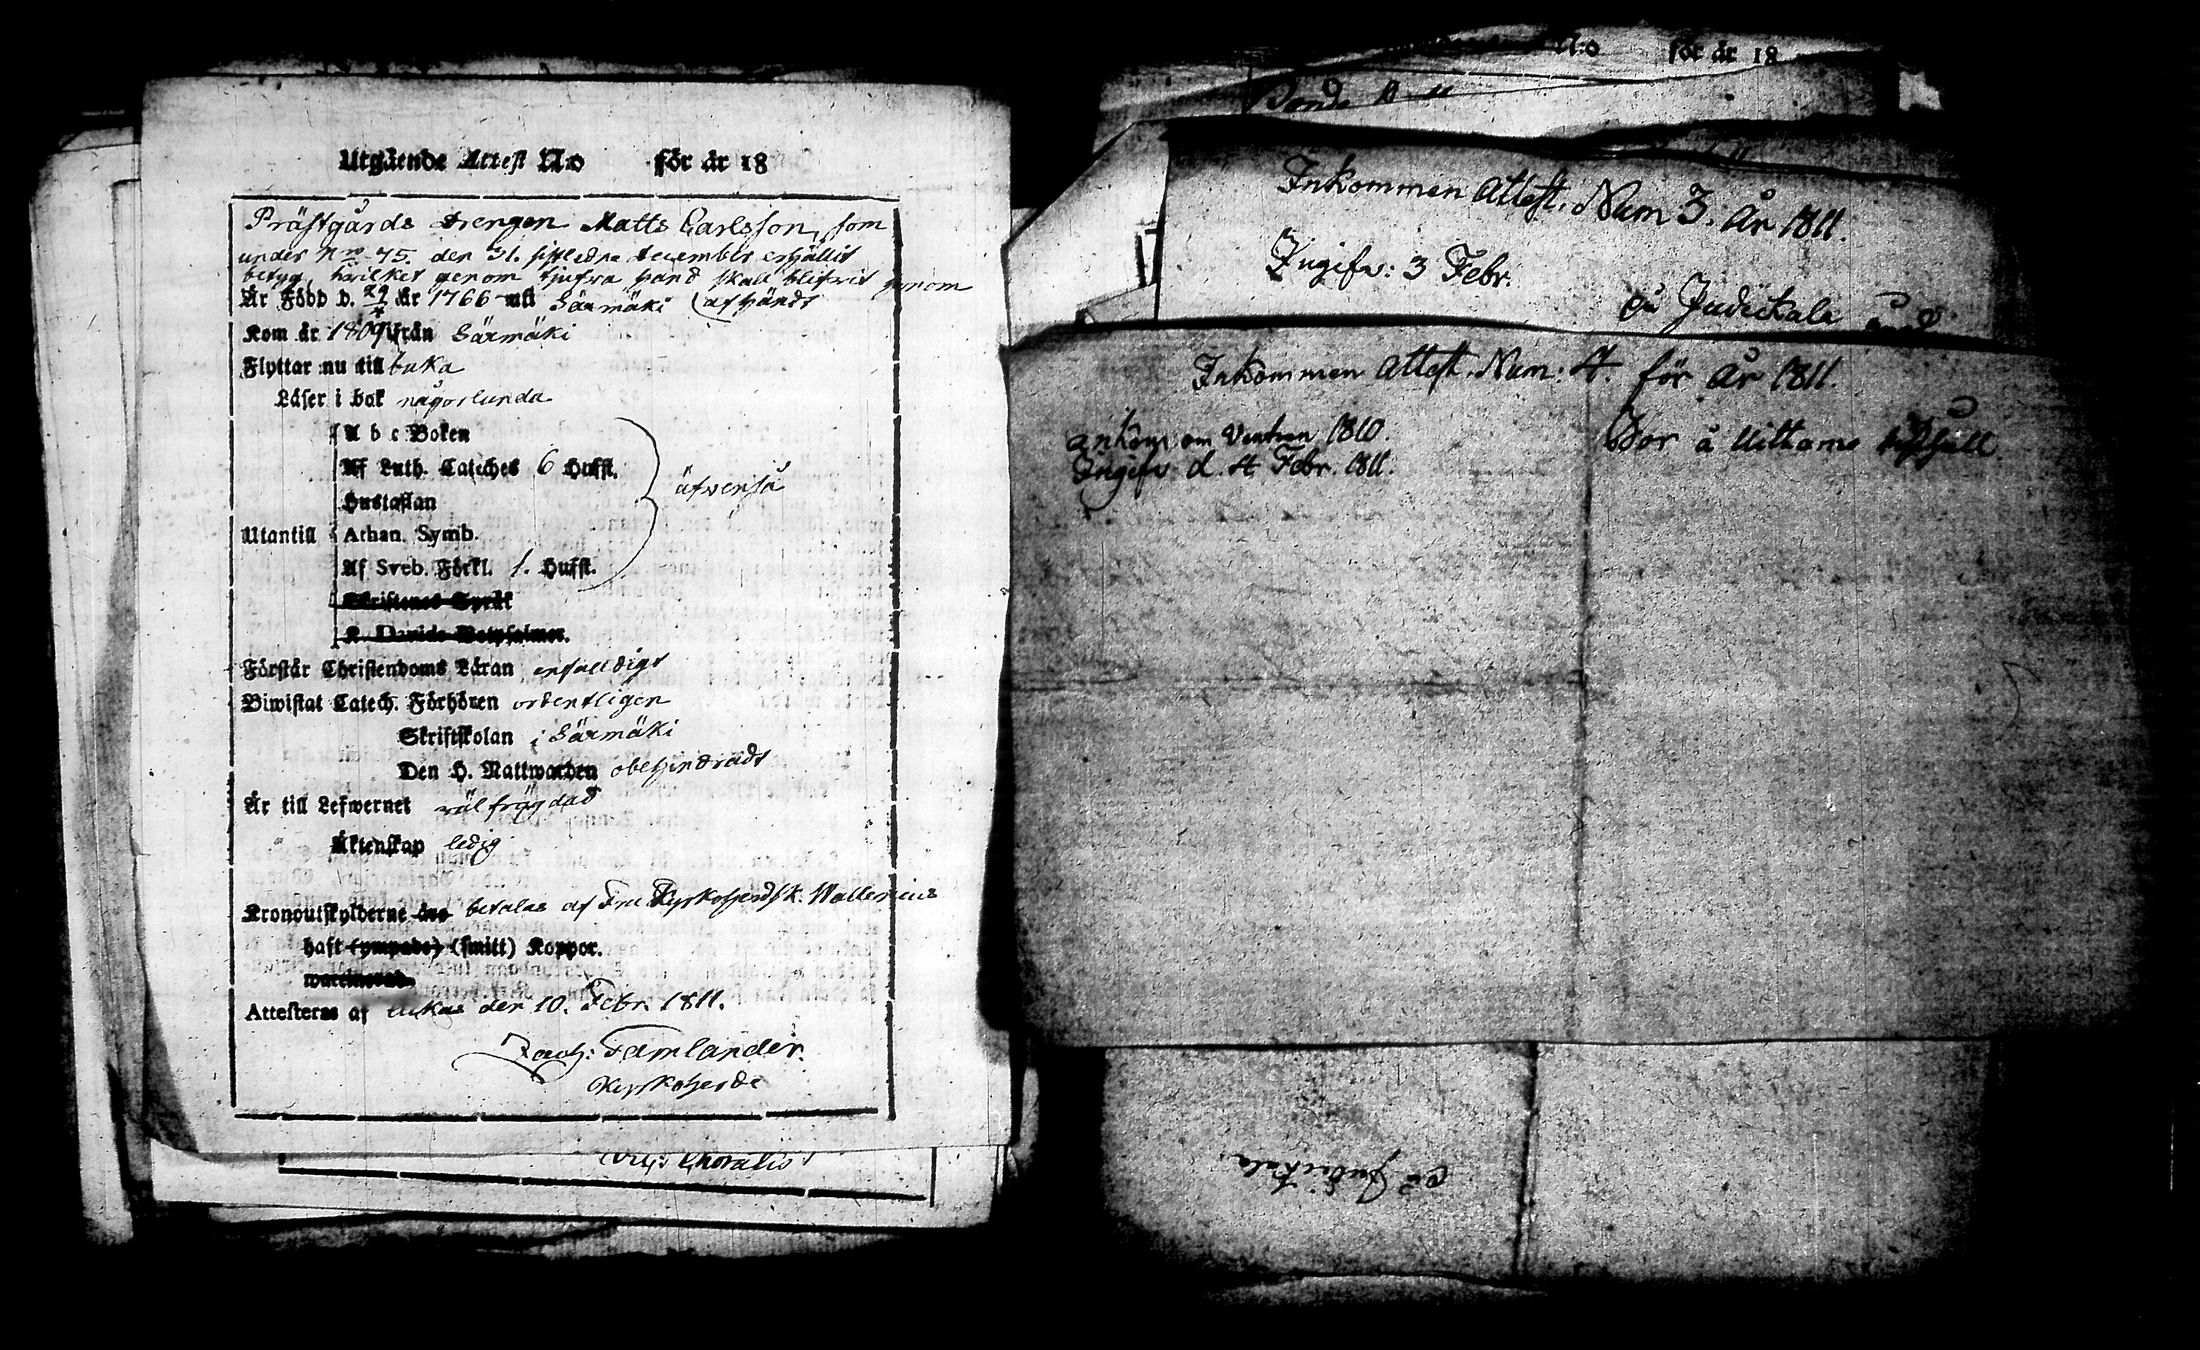 Utgående Attest N:o för år 18
Prästgårds drengen Matts Carlsson, som
under Nro 75. den 31. sistledne december erhållit
betyg, hvilket genom tjufva hand skall blifvit genom
Är Född d. 29/4 år 1766 uti Säxmäki (afhändt
Kom år 1809 ifrån Säxmäki
Flyttar nu till
Läser i bok någorlunda
A b c Boken
Af Luth. Cateches 6 Hufst.
Hustaflan
äfvenså
Utantill
Athan. Symb.
Af Sveb. Förkl. 1. Hufst.
Skriftenes Språk
K. Davids Botpsalmer.
Förstår Christendoms Läran enfaldigt
Biwistat Catech. Förhören ordentligen
Skriftskolan i Säxmäki
Den H. Nattwarden obehindradt
Är till Lefwernet välfrägdad
Äktenskap ledig
Kronoutskylderne betalas af Fru Kyrkoherdsk. Wallenius
haft (ympade) (smitt) Koppor.
Attesteras af den 10. Febr. 1811.
Zach: Famlander.
Kyrkoherde
N:o för år 18
Inkommen Attest. Num 3. År 1811.
Ingifv: 3 Febr.
på
Inkommen Attest. Num: 4. för År 1811.
ankom om Ventren 1810.
Ingifv d. 4 Febr. 1811.
Bor å